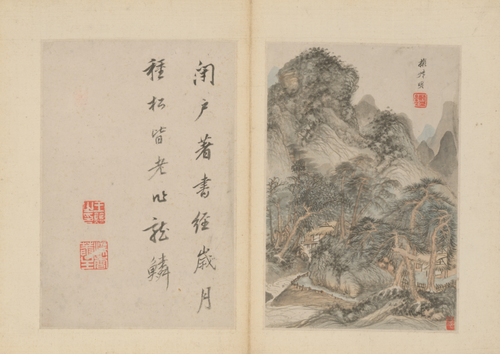 閉戶著書經歲月
種松皆老作龍鱗